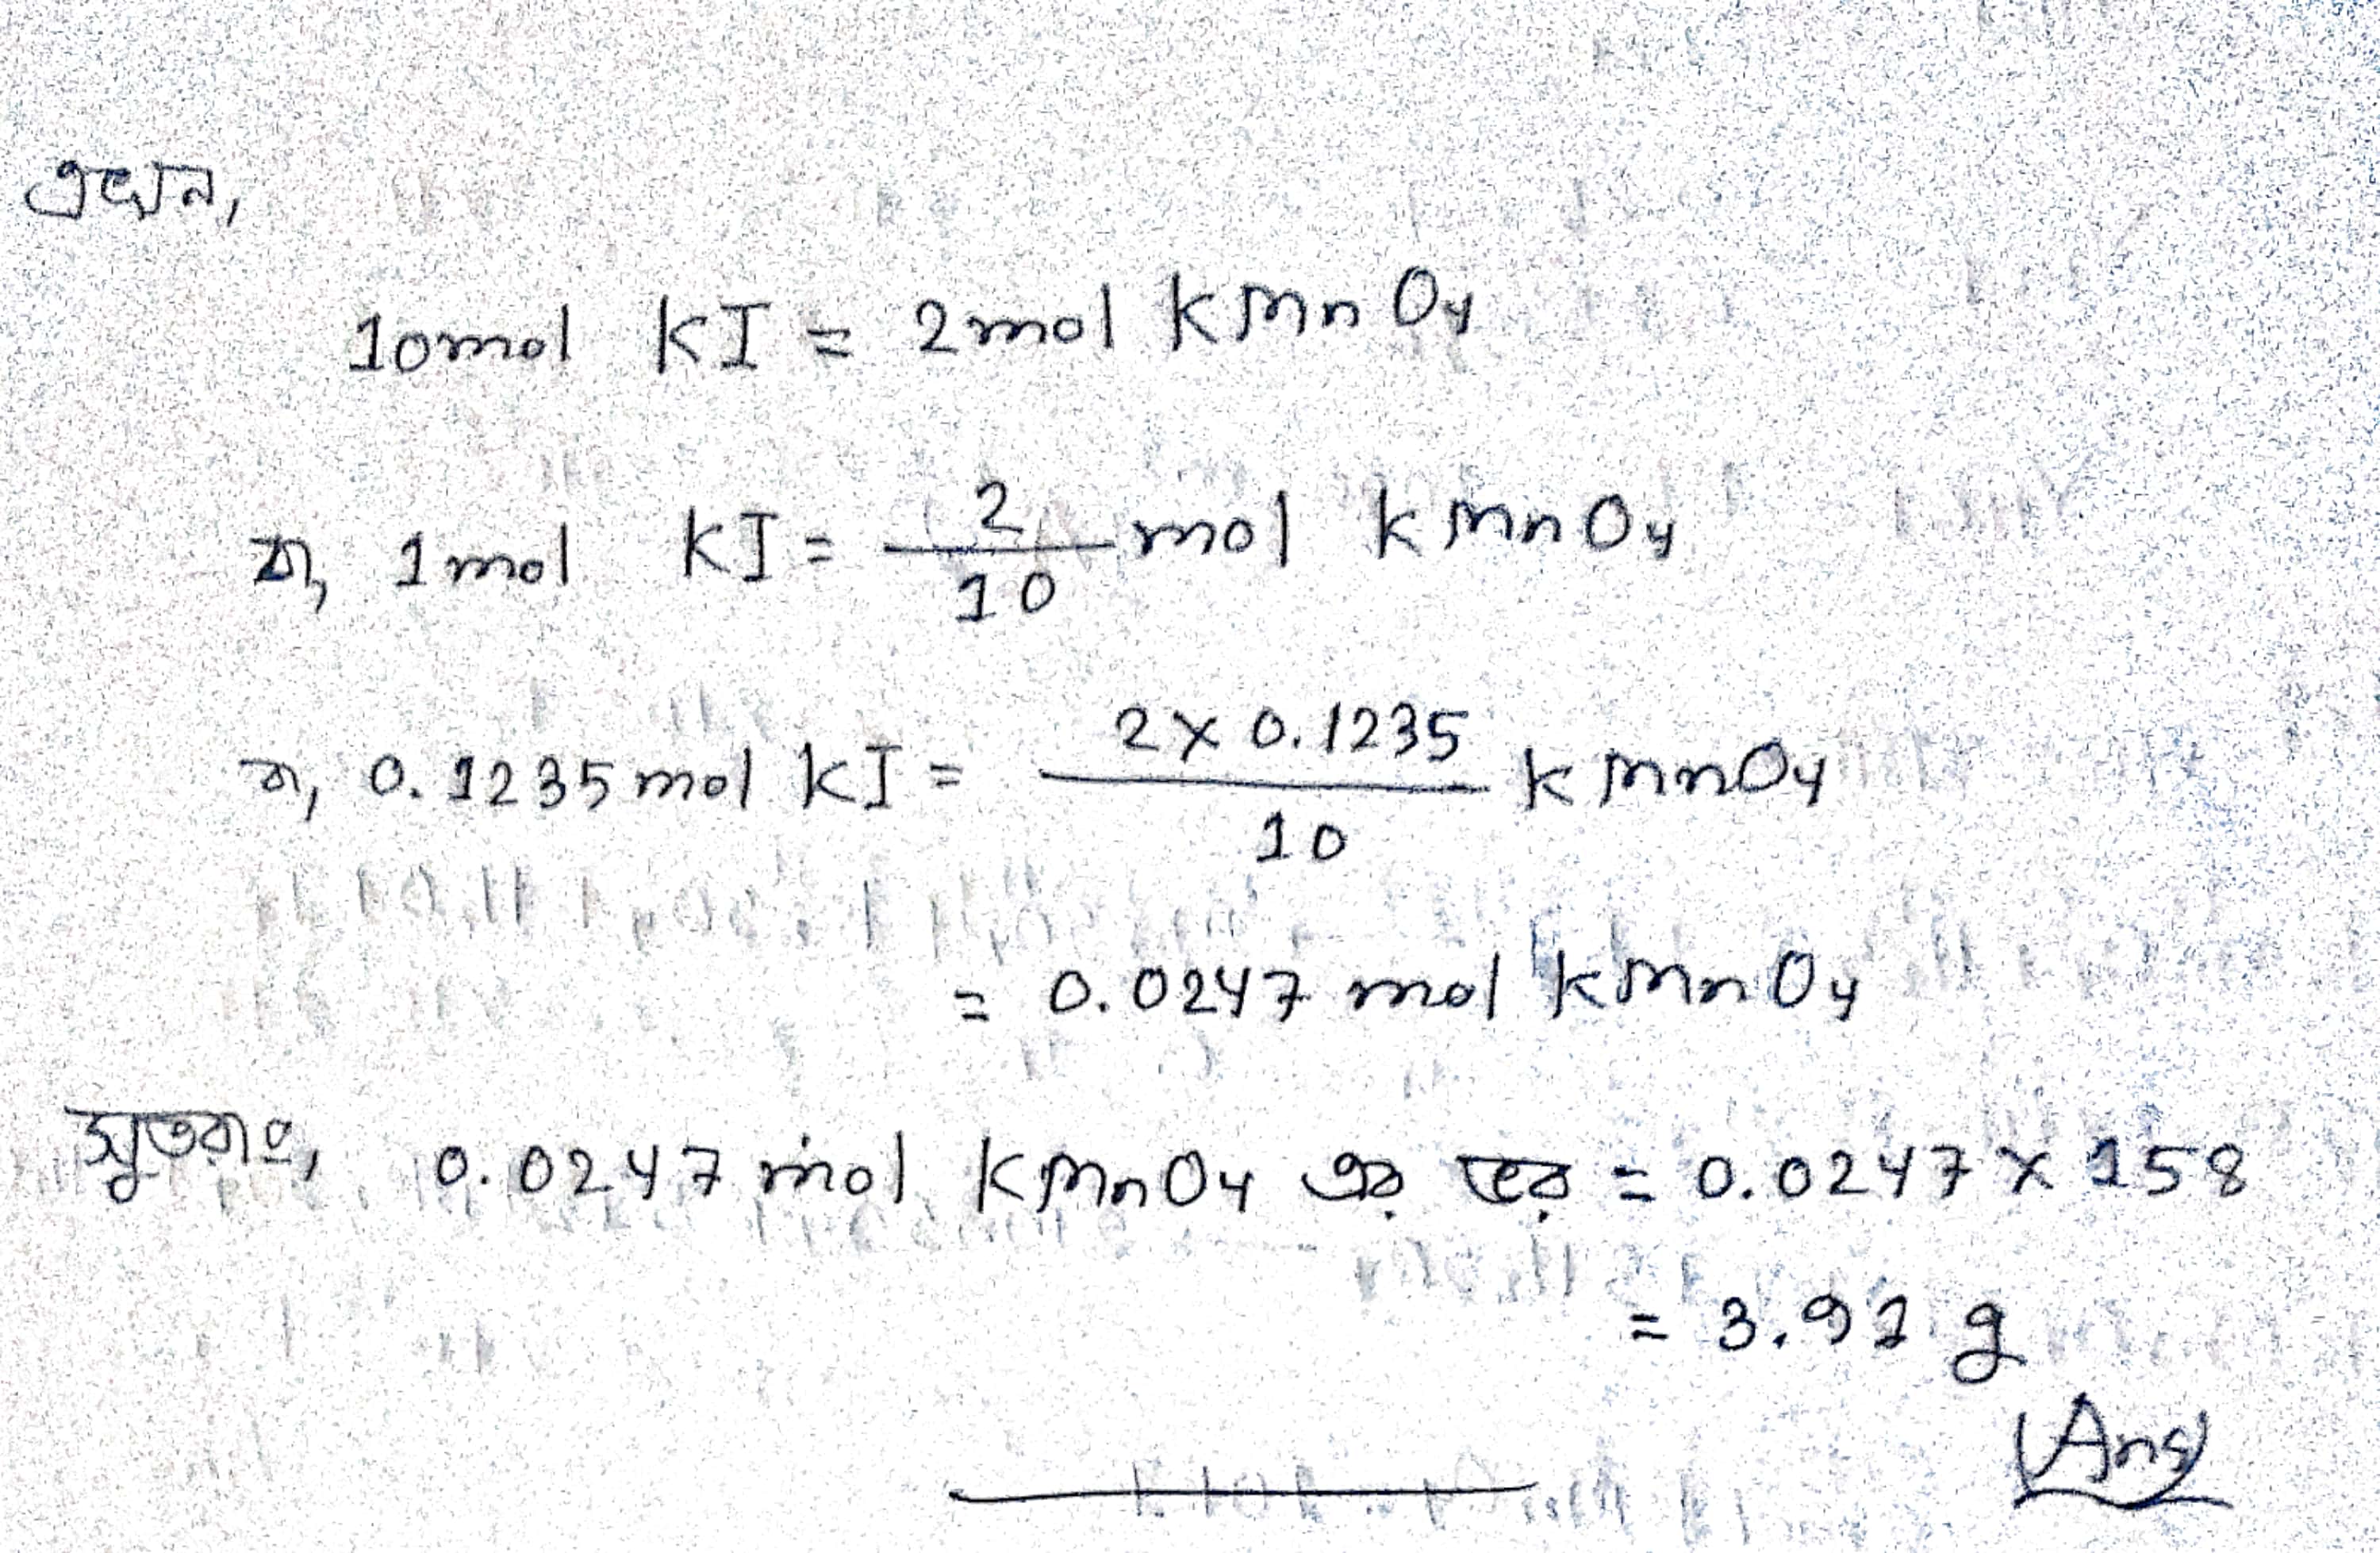 এখন,
10mol KI = 2mol KMnO₄
বা, 1mol KI = 2/10 mol KMnO₄
বা, 0.1235 mol KI = 2 × 0.1235/10 KMnO₄
= 0.0247 mol KMnO₄
সুতরাং, 0.0247 mol KMnO₄ এর ভর = 0.0247 × 158
= 3.91 g
(Ans)